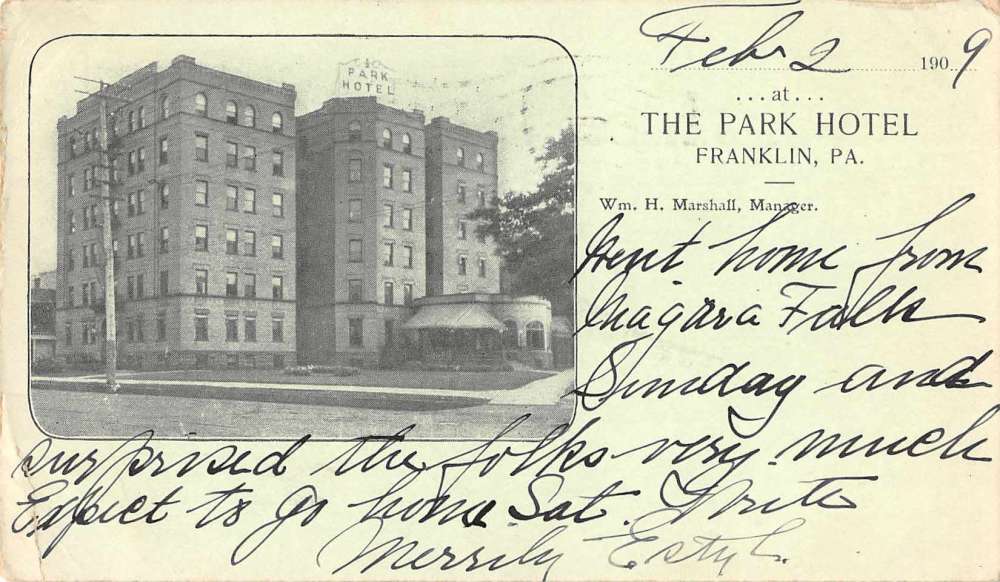 PARK
HOTEL
Feb 2 1909
...at...
THE PARK HOTEL
FRANKLIN, PA.
Wm. H. Marshall, Manager.
Went home from
Niagara Falls
Sunday and
surprised the folks very much
Expect to go home Sat. Write
Merrily